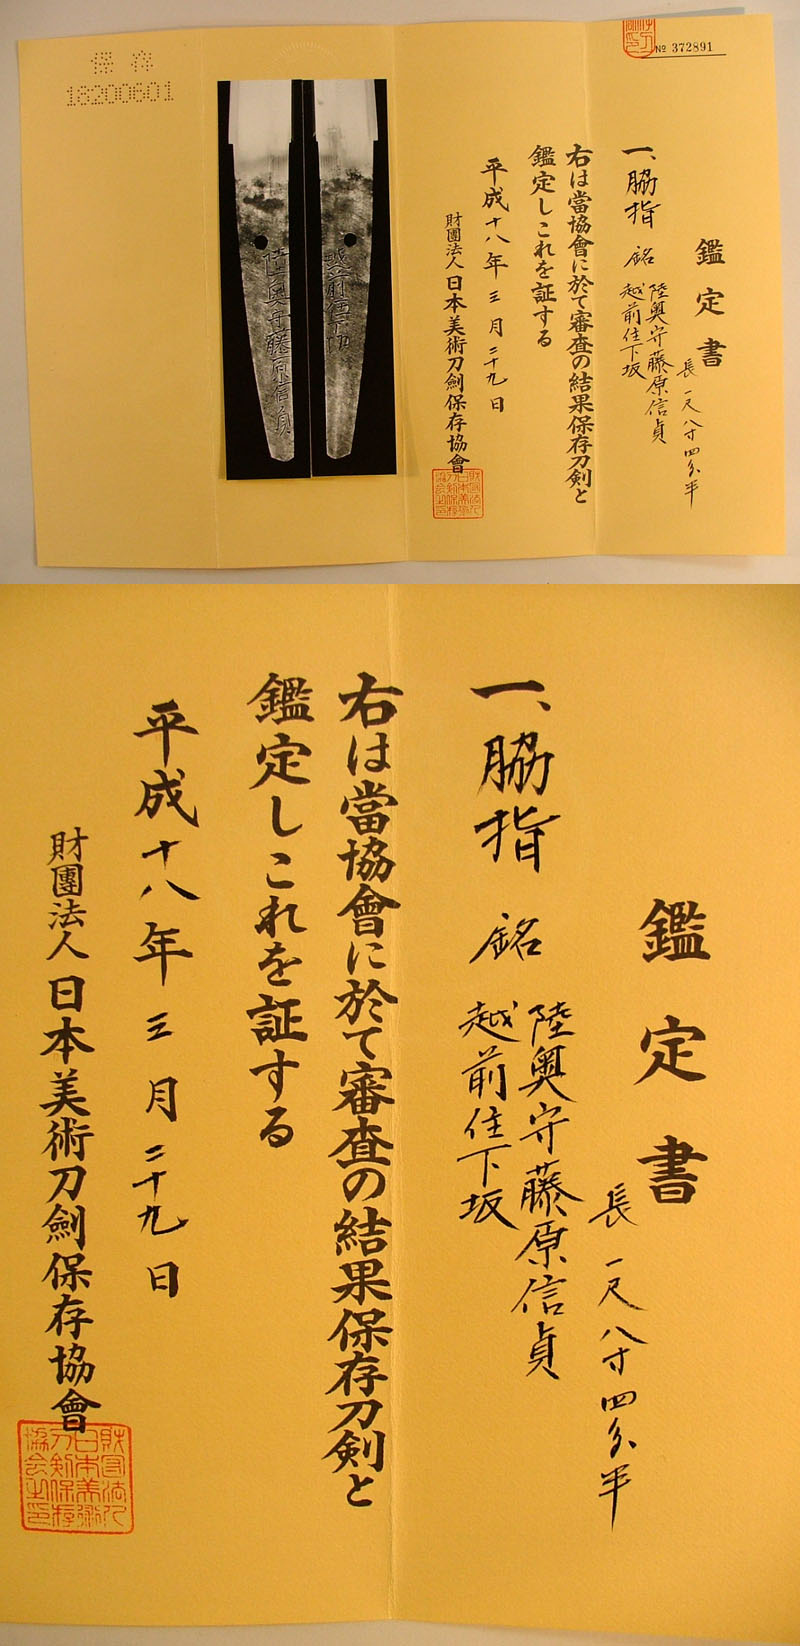 № 372891
鑑定書
長一尺八寸四分半
一、脇指 銘 陸奥守藤原信貞
越前住下坂
右は當協會に於て審査の結果保存刀剣と
鑑定しこれを証する
平成十八年三月二十九日
財團法人日本美術刀劍保存協會
陸奥守藤原信貞
越前住下坂
保存
18200601
鑑定書
長一尺八寸四分半
一、脇指 銘 陸奥守藤原信貞
越前住下坂
右は當協會に於て審査の結果保存刀剣と
鑑定しこれを証する
平成十八年三月二十九日
財團法人日本美術刀劍保存協會
財団法人
日本美術
刀剣保存
協会之印